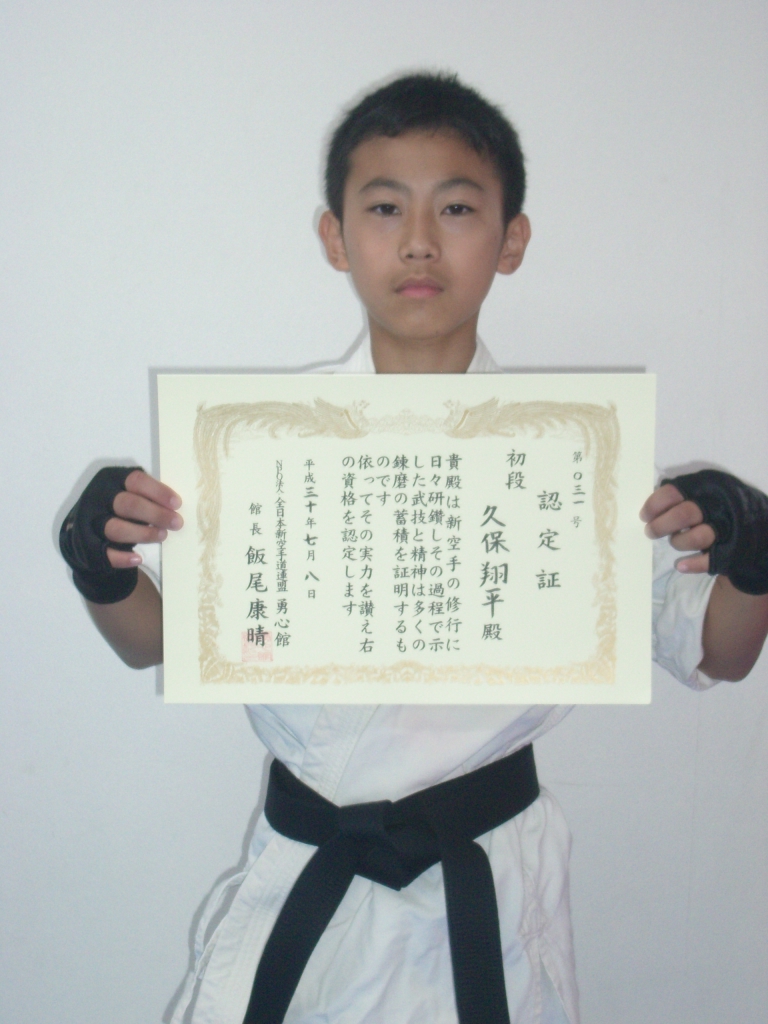 第〇三一号
認定証
初段
久保翔平殿
貴殿は新空手の修行に
日々研鑽しその過程で示
した武技と精神は多くの
錬磨の蓄積を証明するも
のです
依ってその実力を讃え右
の資格を認定します
平成三十年七月八日
NPO法人全日本新空手道連盟 勇心館
館長 飯尾康晴